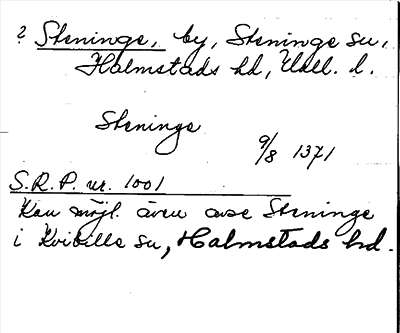 ? Steninge, by, Steninge sn,
Halmstads hd, Hall. l.
Steninge
9/8 1371
S.R.P. nr. 1001
Kan möjl. även avse Steninge
i Kvibille sn, Halmstads hd.